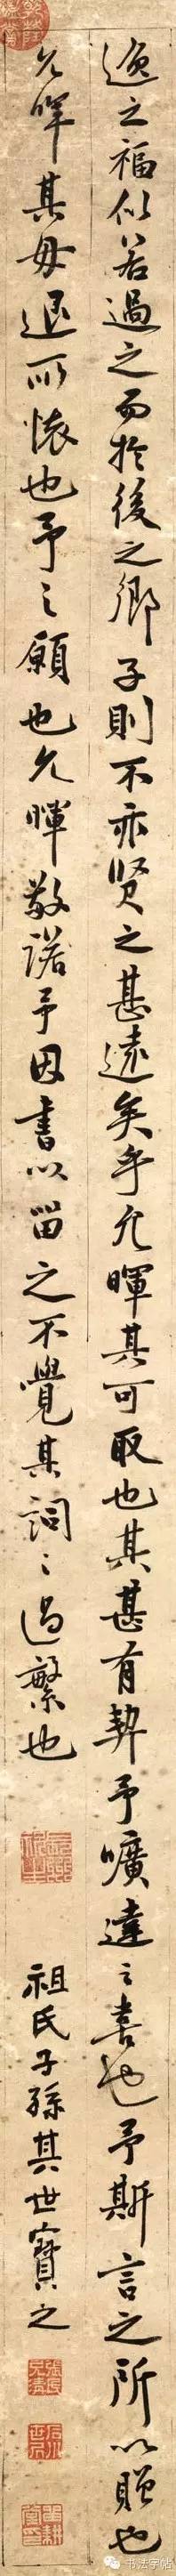 逸之福似若過之而於後之鄉子則不亦賢之甚遠矣乎允暉其可取也其甚有契予曠達之喜也予斯言之所以贈也
允暉其毋退所懷也予之願也允暉敬諾予因書以留之不覺其詞之過繁也
祖氏子孫其世寶之
书法字帖